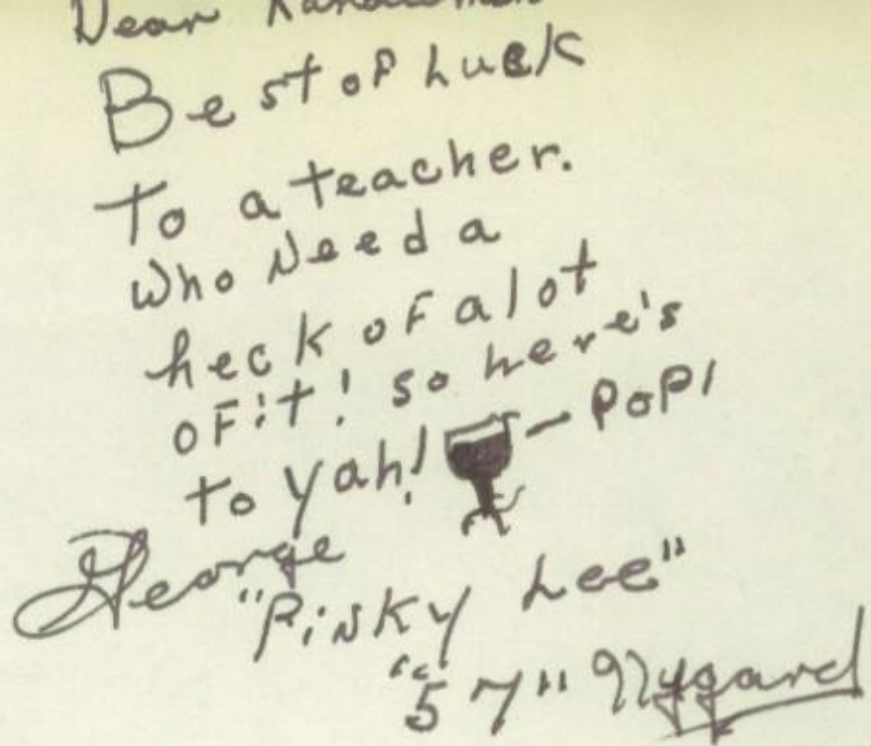 Dear
Best of Luck
To a teacher.
Who Need a
heck of a lot
of it! so here's
to yah! - POP!
George
"Pinky Lee"
"57" Nygard